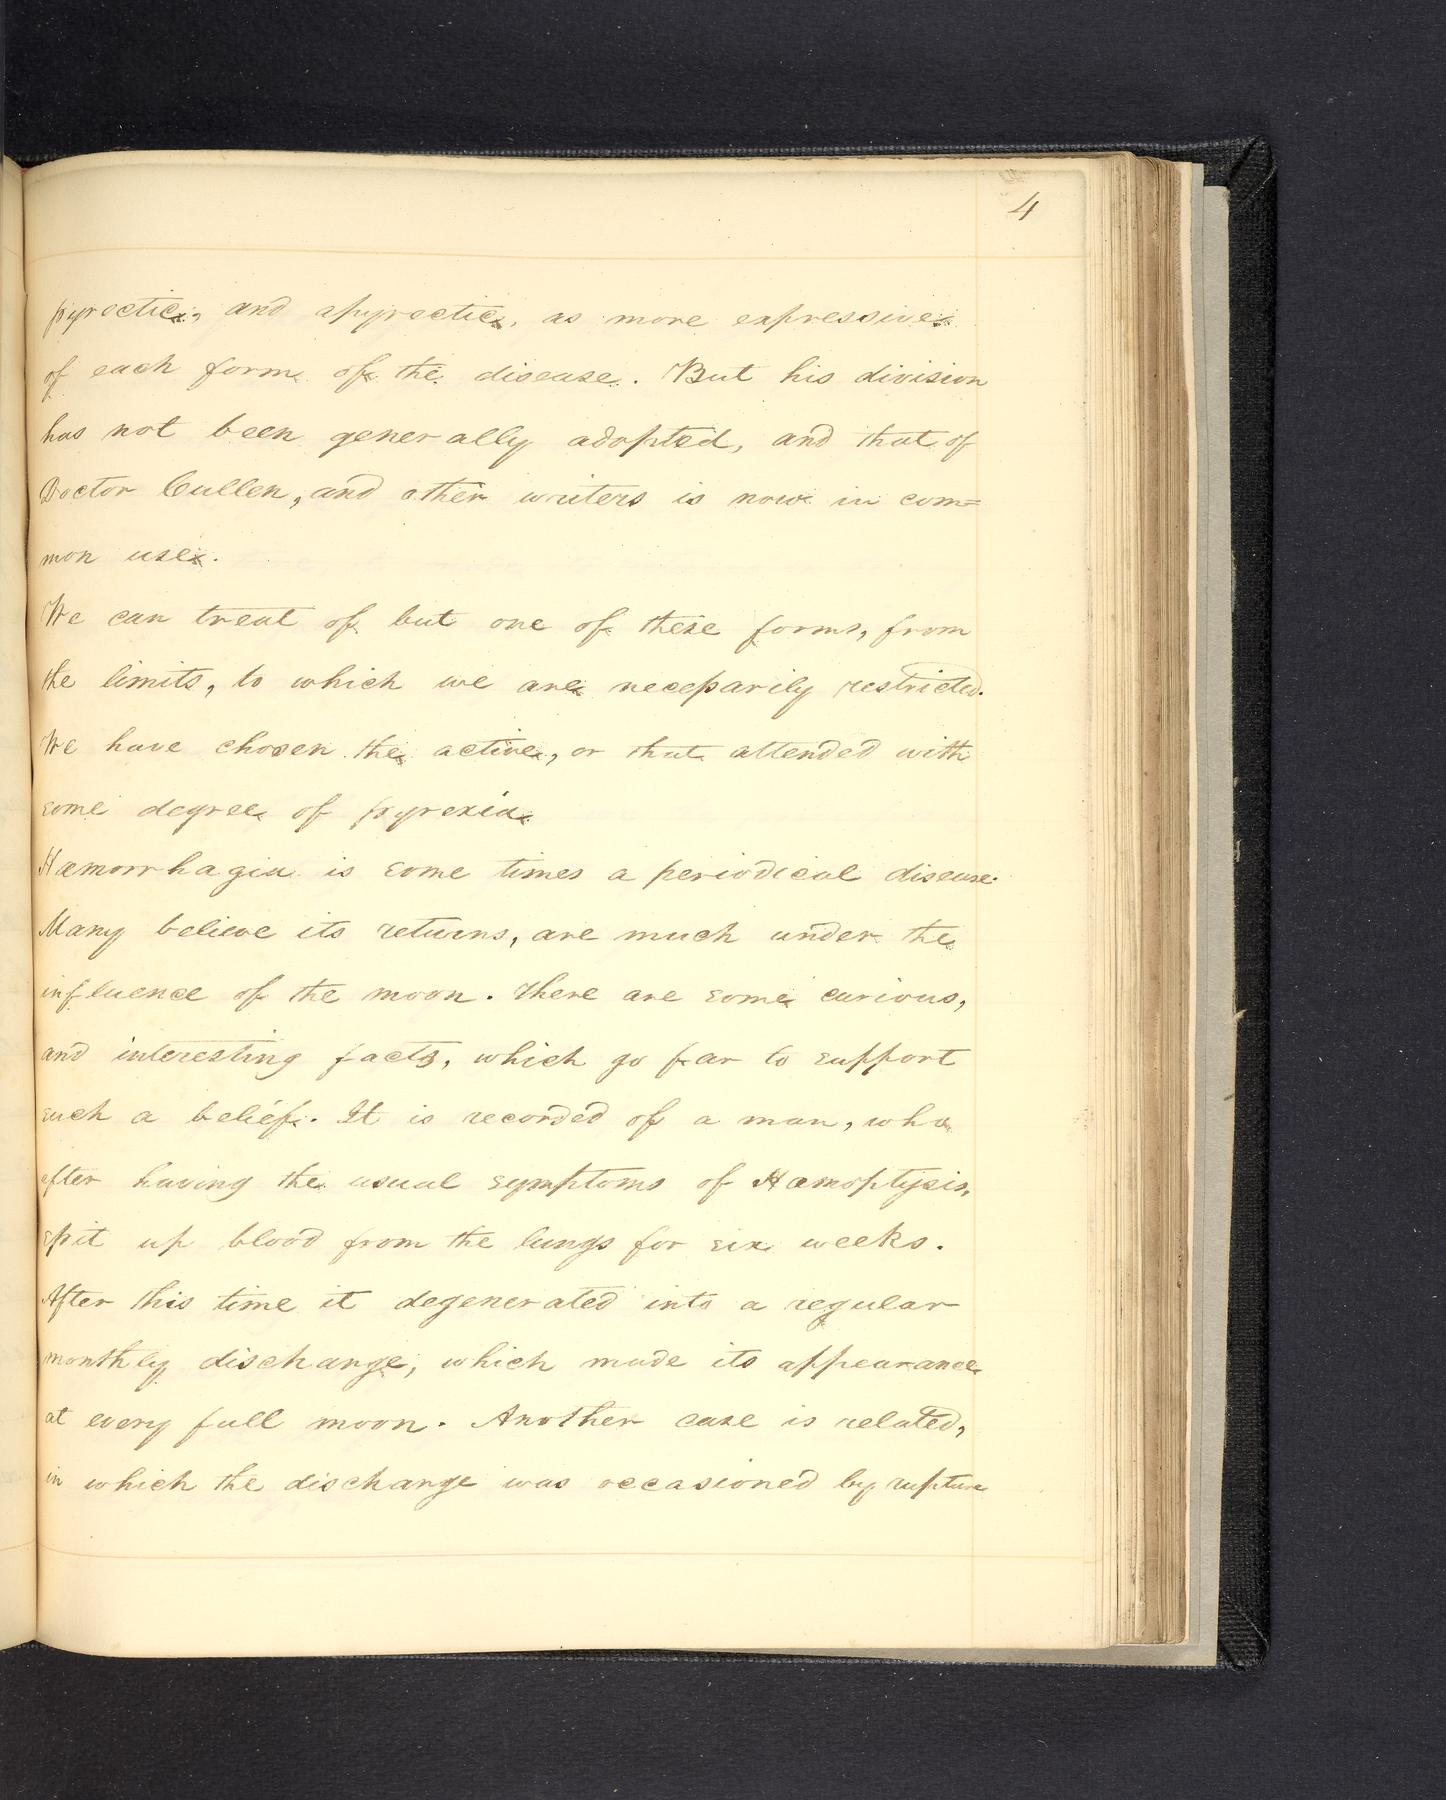 4
pyrectic, and apyrectic, as more expressive
of each form of the disease. But his division
has not been generally adopted, and that of
Doctor Cullen, and other writers is now in com=
mon use.
We can treat of but one of these forms, from
the limits, to which we are necessarily restricted.
We have chosen the active, or that attended with
some degree of pyrexia.
Hæmorrhagia is some times a periodical disease.
Many believe its returns, are much under the
influence of the moon. There are some curious,
and interesting facts, which go far to support
such a belief. It is recorded of a man, who
after having the usual symptoms of Hæmoptysis,
spit up blood from the lungs for six weeks.
After this time it degenerated into a regular
monthly discharge, which made its appearance
at every full moon. Another case is related,
in which the discharge was occasioned by rupture